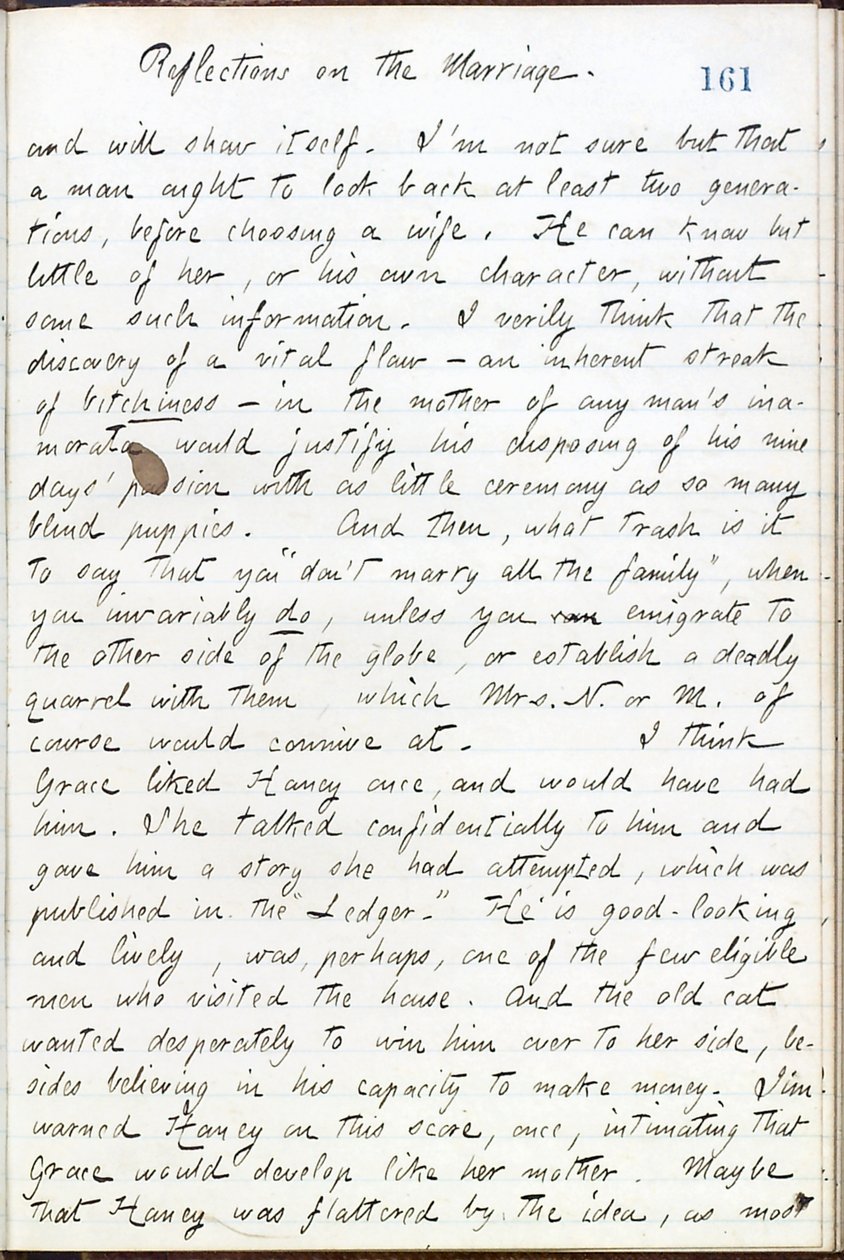 Reflections on the Marriage.
161
and will show itself. I'm not sure but that
a man ought to look back at least two genera-
tions, before choosing a wife. He can know but
little of her, or his own character, without
some such information. I verily think that the
discovery of a vital flaw - an inherent streak
of bitchiness - in the mother of any man's ina-
morata would justify his disposing of his nine
days' passion with as little ceremony as so many
blind puppies. And then, what trash is it
to say that you "don't marry all the family", when
you invariably do, unless you can emigrate to
the other side of the globe, or establish a deadly
quarrel with them, which Mrs. N. or M. of
course would connive at. I think
Grace liked Haney once, and would have had
him. She talked confidentially to him and
gave him a story she had attempted, which was
published in the "Ledger." He is good-looking
and lively, was, perhaps, one of the few eligible
men who visited the house. And the old cat
wanted desperately to win him over to her side, be-
sides believing in his capacity to make money. Jim
warned Haney on this score, once, intimating that
Grace would develop like her mother. Maybe
that Haney was flattered by the idea, as most